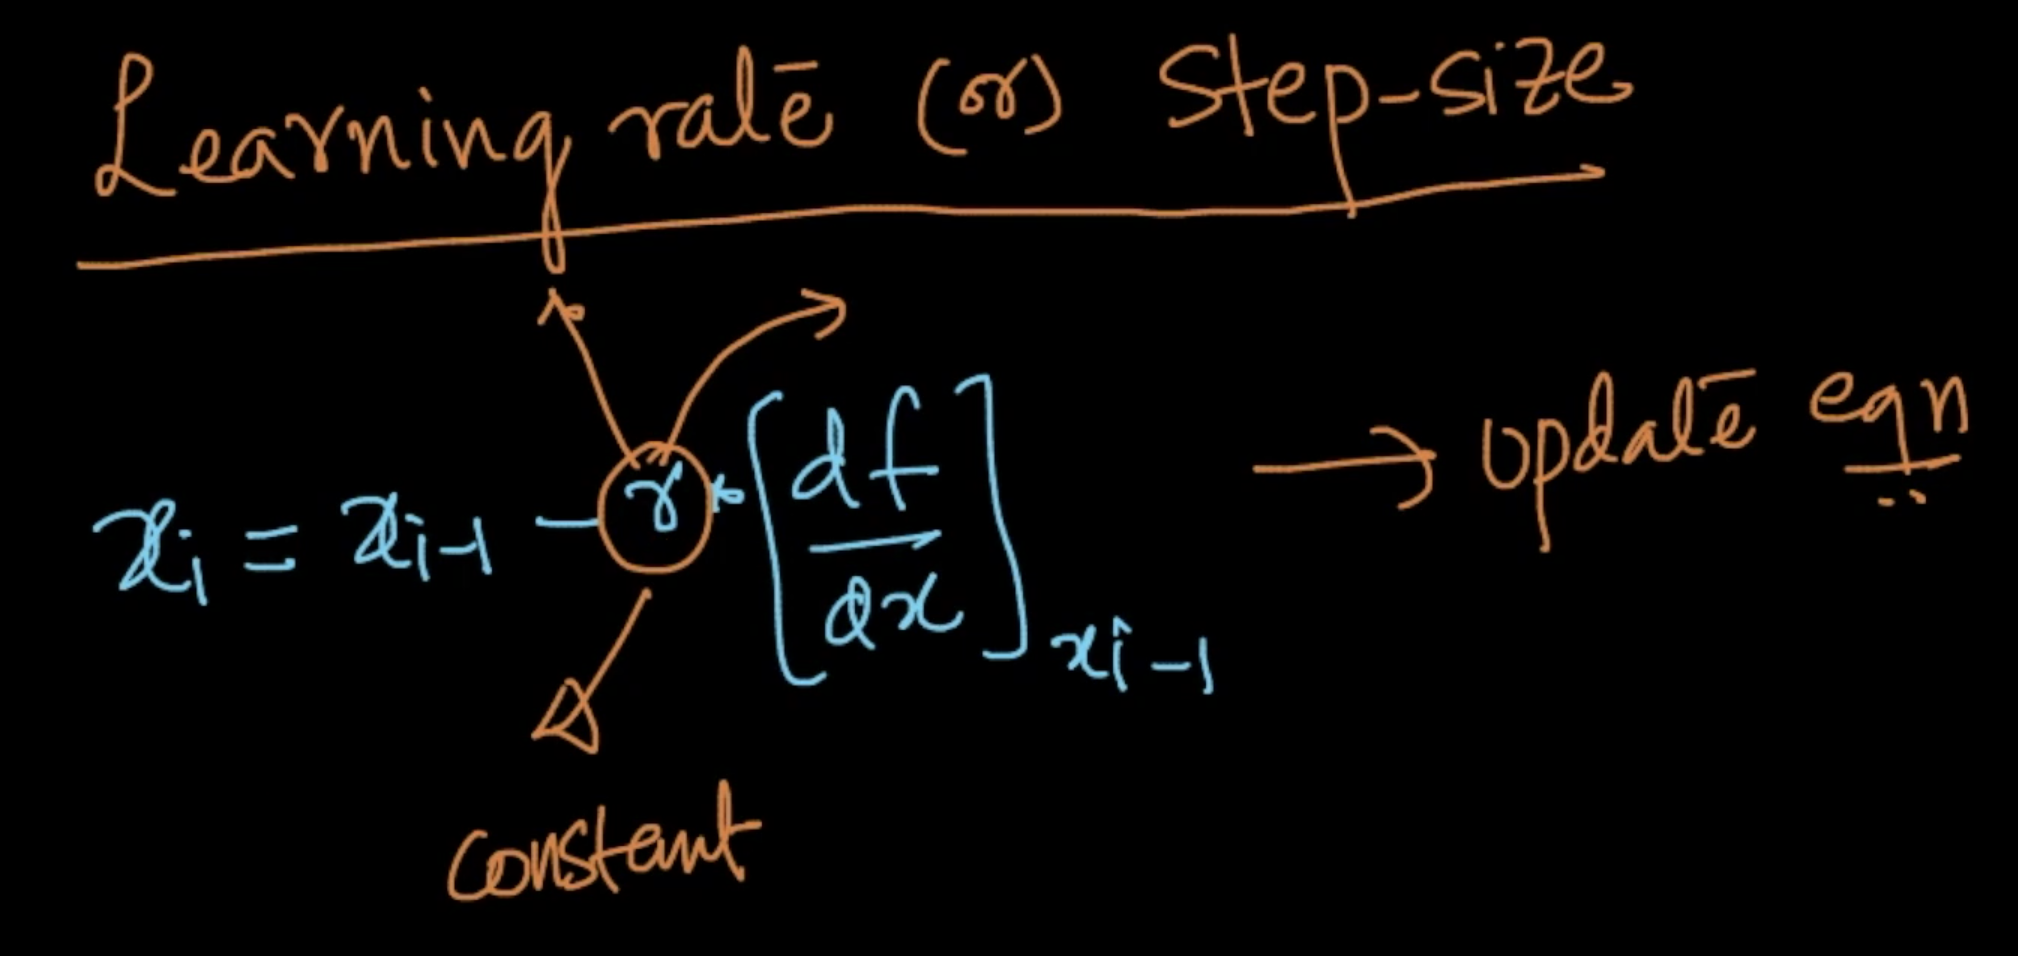 Learning rate (or) Step-size
xᵢ = xᵢ₋₁ - r * [df/dx]ₓᵢ₋₁ → update eqn
constant